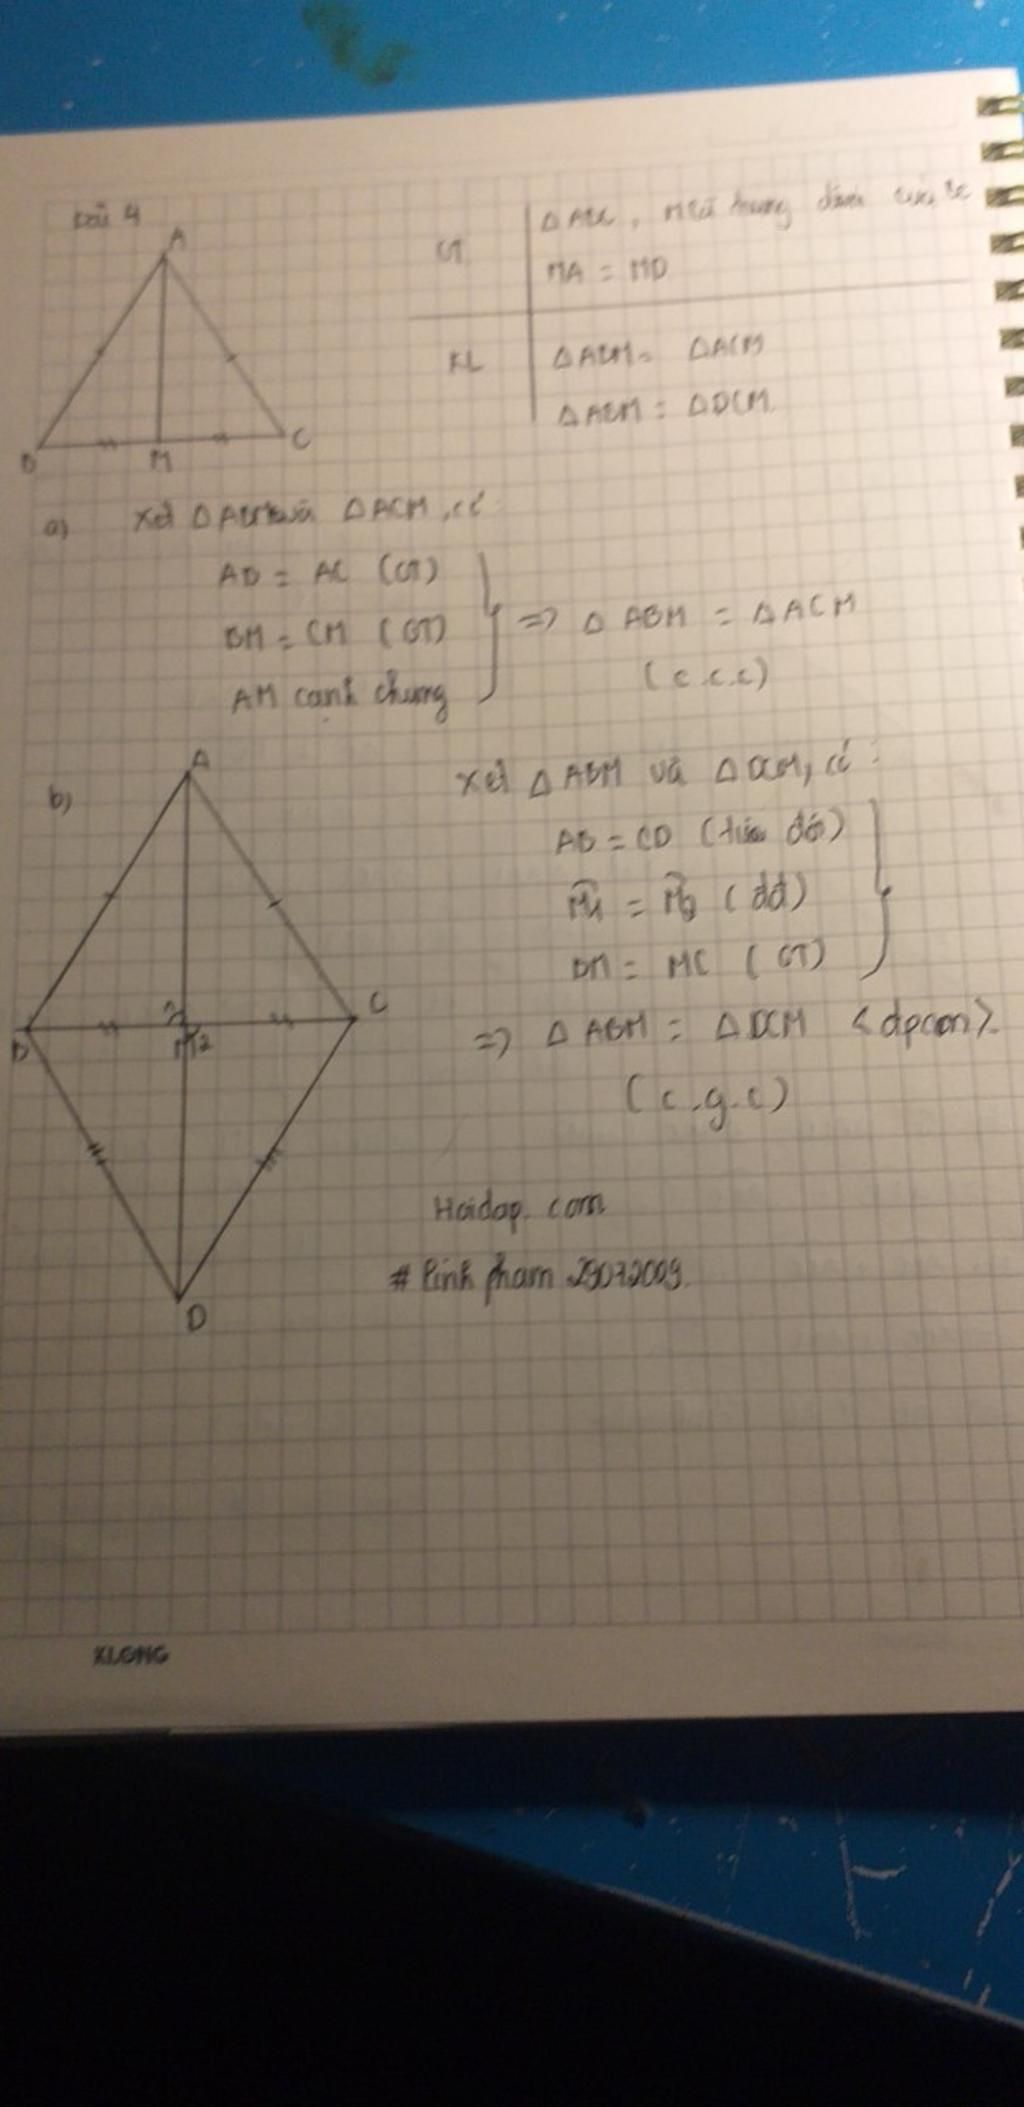 Bài 4
A
B
M
C
GT
△ABC, M là trung điểm của BC
MA = MD
KL
△ABM = △ACM
△ABM = △DCM
a) Xét △ABM và △ACM, có
AB = AC (GT)
BM = CM (GT)
AM cạnh chung
=> △ABM = △ACM
(c.c.c)
b)
A
B
C
M
1
2
D
Xét △ABM và △DCM, có :
AB = CD (đối)
M1 = M2 (đđ)
BM = MC (GT)
=> △ABM = △DCM <dpcm>.
(c.g.c)
Hoidap.com
# Linh pham 29072009.
KLONG